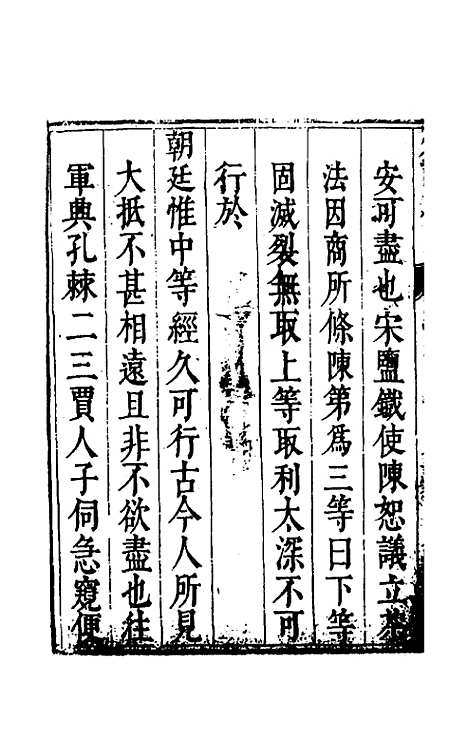 安可盡也宋鹽鐵使陳恕議立茶
法因商所條陳第爲三等曰下等
固滅裂無取上等取利太深不可
行於
朝廷惟中等經久可行古今人所見
大抵不甚相遠且非不欲盡也往
軍興孔棘二三賈人子伺急窺便